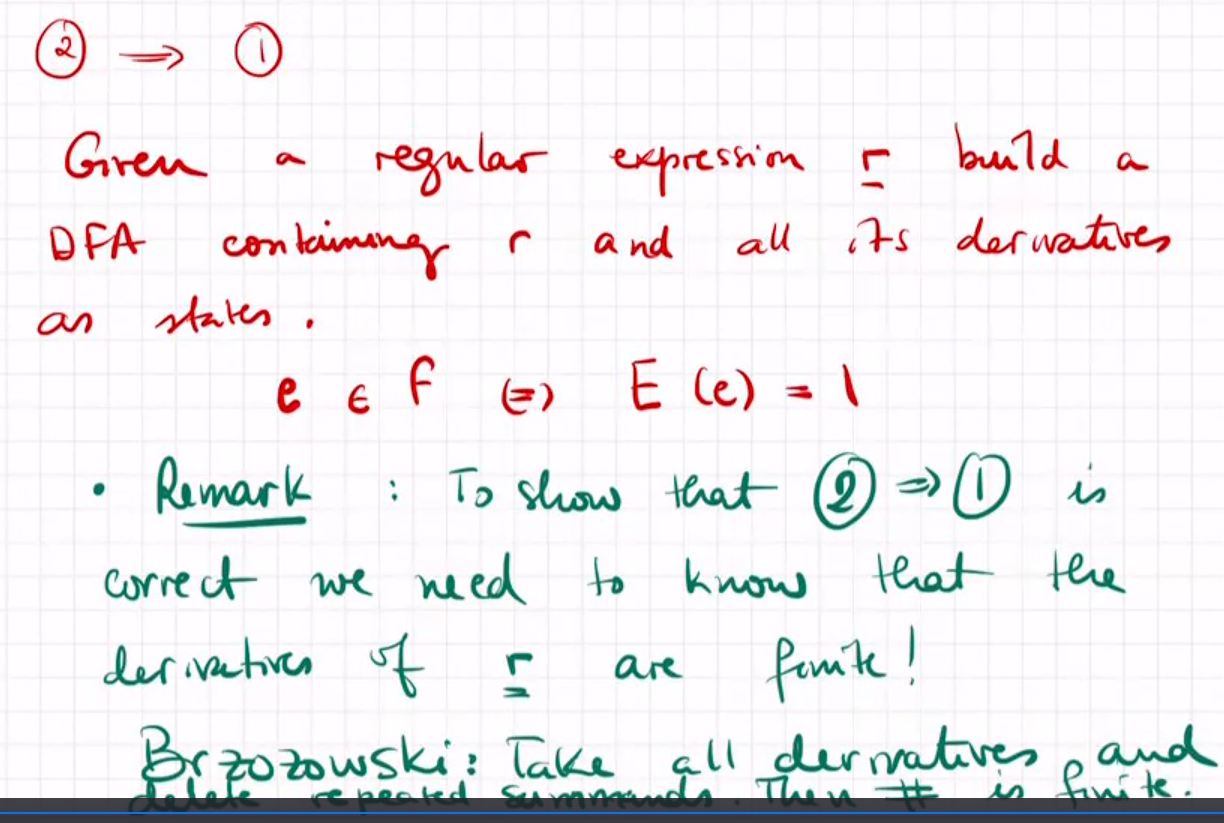 ② ⟹ ①
Given a regular expression r build a
DFA containing r and all its derivatives
as states.
e ∈ F (=) E (e) = 1
• Remark : To show that ② => ① is
correct we need to know that the
derivatives of r are finite!
Brzozowski: Take all derivatives and
delete repeated summands. Then # is finite.